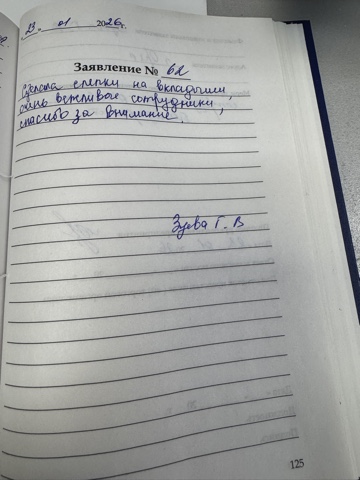 23. 01 2026 г.
Заявление № 62
Сделала слепки на вкладыши,
очень вежливые сотрудники,
спасибо за внимание.
Зуева Г. В
125